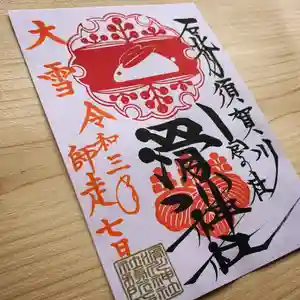 石背
須賀川
宮の杜
滑川神社
大雪
令和三年
師走
七日